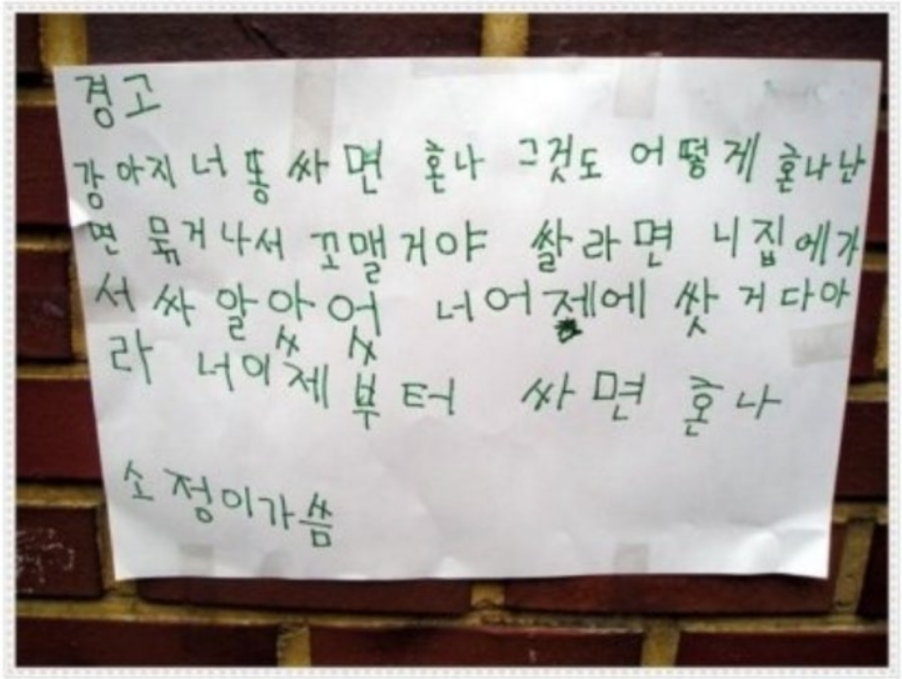 경고
강아지 너 똥 싸면 혼나 그것도 어떻게 혼나난
면 묶거나서 꼬맬거야 쌀라면 니집에가
서 싸 알았어 너어제에 쌋거다아
라 너이제부터 싸면 혼나
소정이가씀